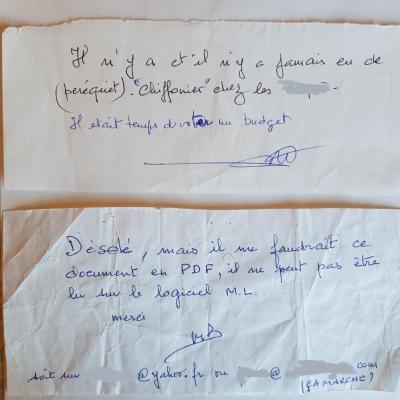 Il n'y a et il n'y a jamais eu de
(perequiet). "Chiffonier" chez les
Il etait temps d voter un budget
Désolé, mais il me faudrait ce
document en PDF, il ne peut pas être
lu sur le logiciel M.L.
merci
MB
soit sur @yahoo.fr ou @ com
(ÇA MARCHE)